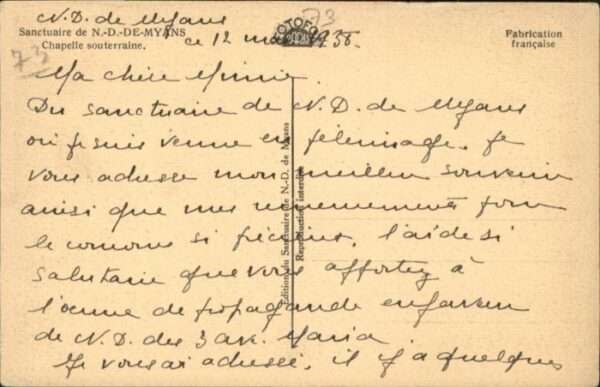 N.D. de Myans
73
Sanctuaire de N.-D.-DE-MYANS
Chapelle souterraine.
ce 12 mai 1938.
Fabrication
française
73
Ma chère Minnie.
Du sanctuaire de N.D. de Myans
où je suis venue en pèlerinage. Je
vous adresse mon meilleur souvenir
ainsi que mes remerciements pour
le concours si précieux, l'aide si
salutaire que vous apportez à
l'œuvre de propagande en faveur
de N.D. des 3 Ave. Maria
Je vous ai adressé, il y a quelques
Edition du Sanctuaire de N.-D. de Myans
Reproduction interdite